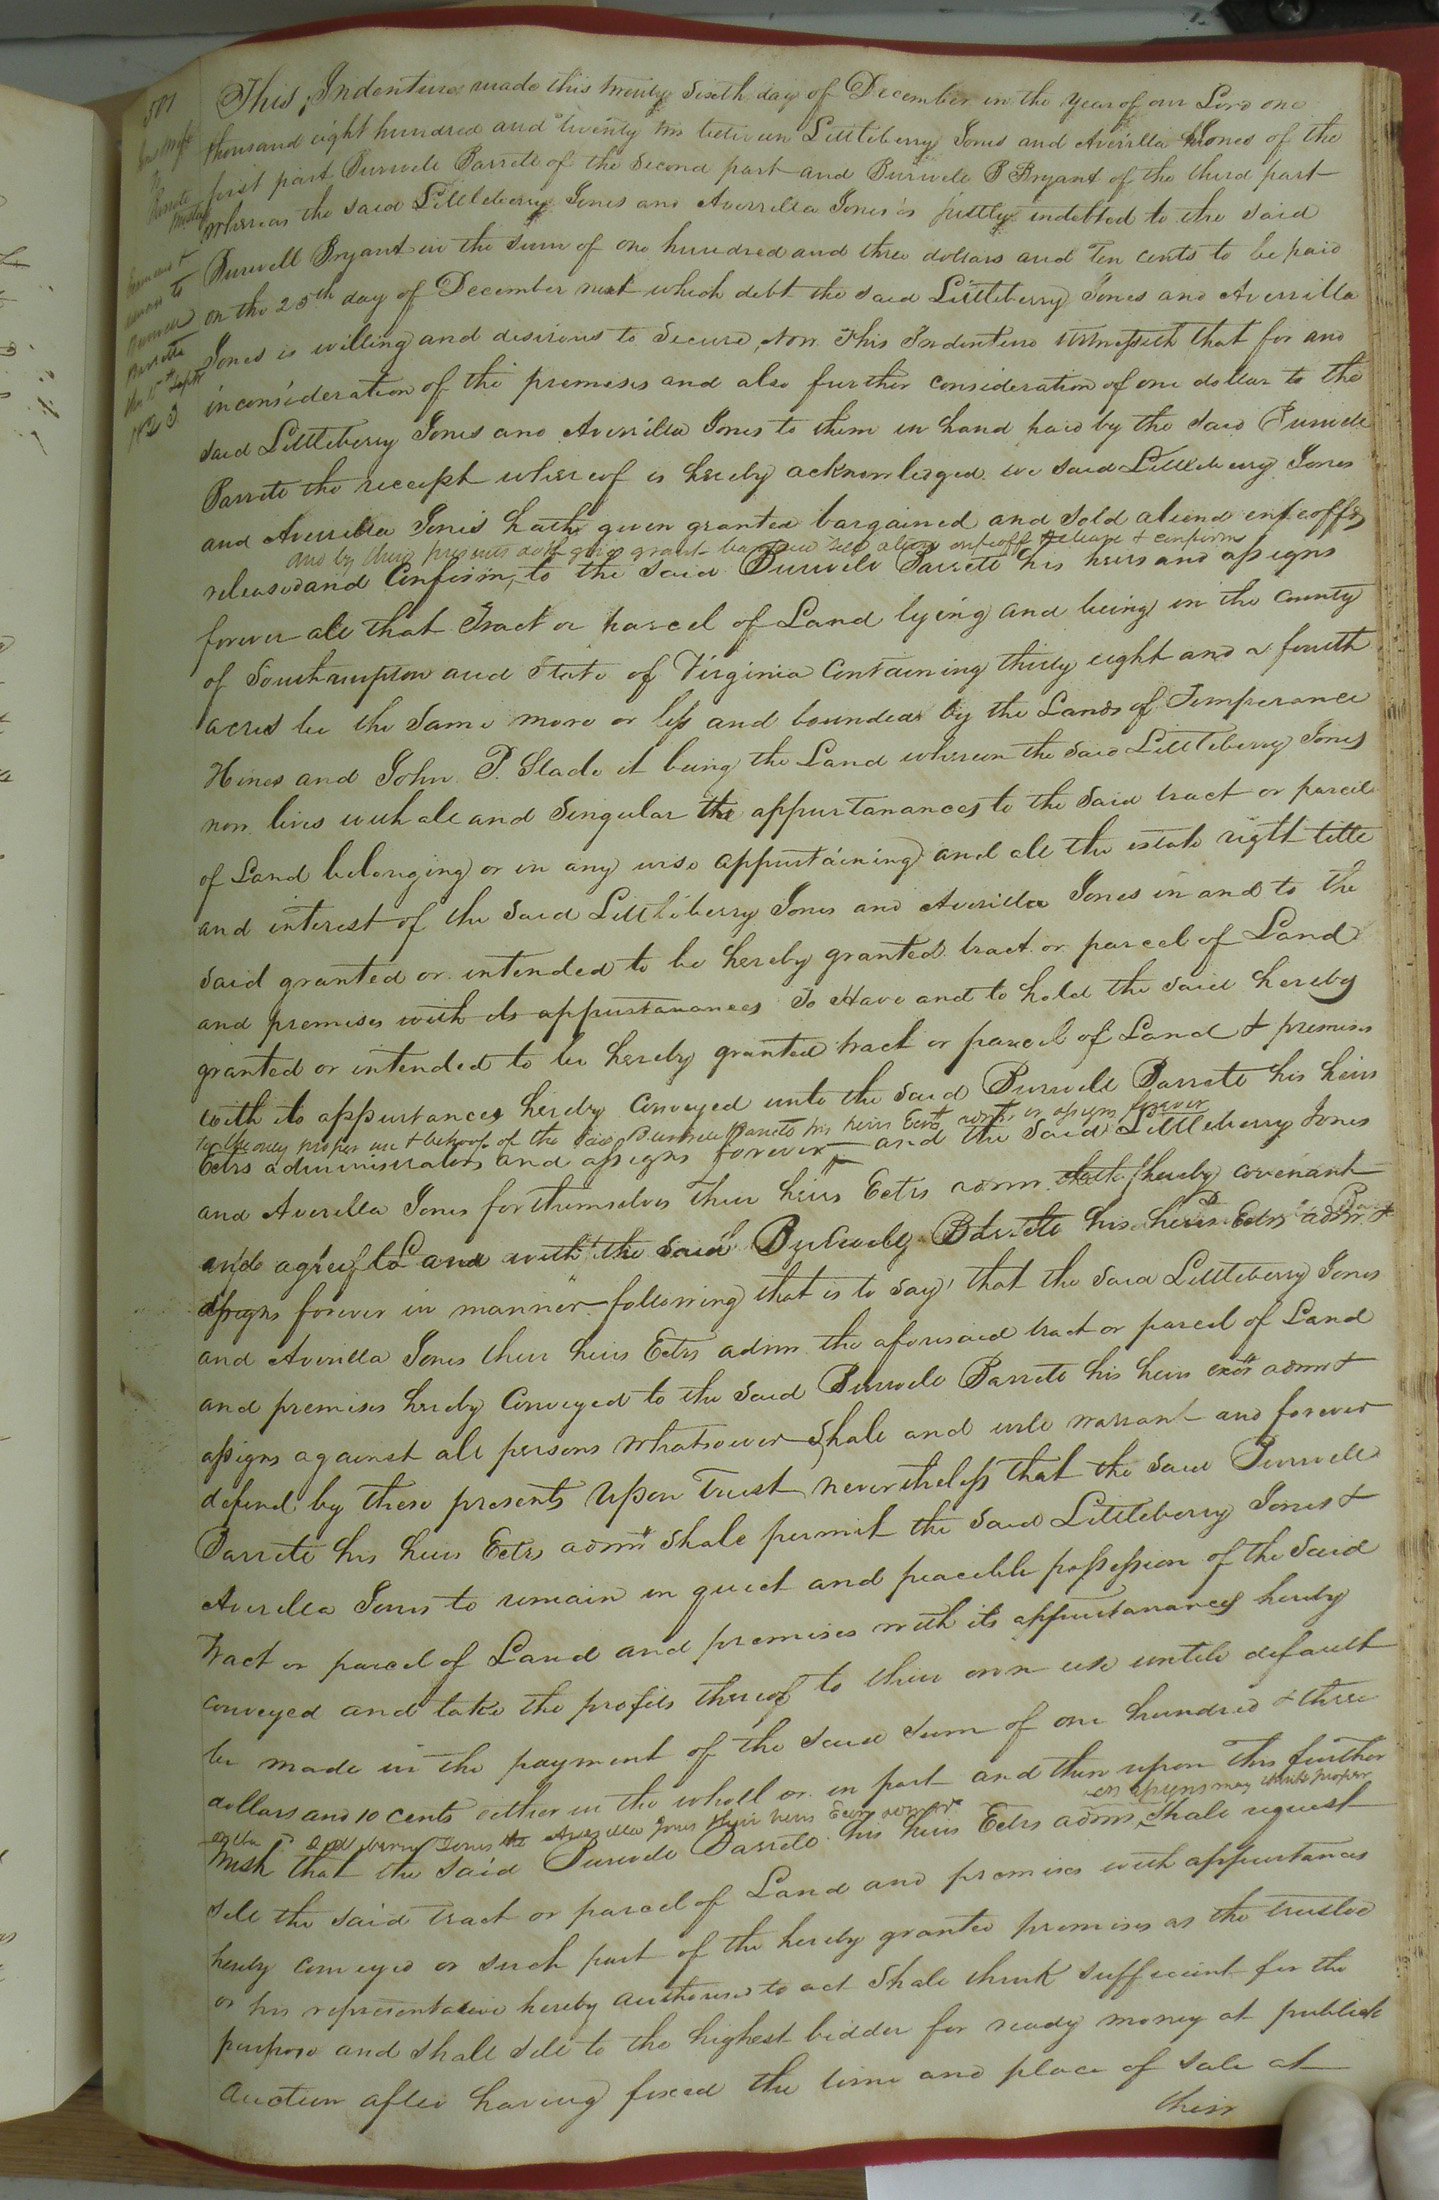 507
This Indenture made this twenty Sixth day of December in the Year of our Lord one
thousand eight hundred and twenty two between Littleberry Jones and Averrilla Jones of the
first part Burwell Barrett of the Second part and Burwell B Bryant of the third part
Whereas the said Littleberry Jones and Averrilla Jones is justly indebted to the said
Burwell Bryant in the Sum of one hundred and three dollars and Ten cents to be paid
on the 25th day of December next which debt the said Littleberry Jones and Averrilla
Jones is willing and desirous to Secure, Now This Indenture Witnesseth that for and
inconsideration of the premises and also further consideration of one dollar to the
said Littleberry Jones and Averrilla Jones to them in hand paid by the said Burwell
Barrett the receipt whereof is hereby acknowledged we said Littleberry Jones
and Averrilla Jones hath given granted bargained and Sold aliend enfeoffd
and by these presents doth give grant bargain sell alien enfeoff release & confirm
released and Confirm, to the said Burwell Barrett his heirs and assigns
forever all that Tract or parcel of Land lying and being in the County
of Southampton and State of Virginia Containing thirty eight and a fourth
acres be the Same more or less and bounded by the Lands of Temperance
Hines and John P. Slade it being the Land whereon the said Littleberry Jones
now lives with all and Singular the appurtanances to the Said tract or parcel
of Land belonging or in any wise appurtaining and all the estate right title
and interest of the Said Littleberry Jones and Averilla Jones in and to the
Said granted or intended to be hereby granted tract or parcel of Land
and premises with its appurtanances To Have and to hold the Said hereby
granted or intended to be hereby granted tract or parcel of Land & premises
with its appurtances hereby Conveyed unto the said Burwell Barrett his heirs
to the only proper use & behoof of the said Burwell Barrett his heirs Exctrs admrs or assigns forever
Ectrs administrators and assigns forever and the Said Littleberry Jones
and Averilla Jones for themselves their heirs Ectrs admrs hereby covenant
and agree to and with the Said Burwell Barrett his heirs Ectrs admr &
assigns forever in manner following that is to Say that the Said Littleberry Jones
and Averilla Jones their heirs Ectrs admrs the aforesaid tract or parcel of Land
and premises hereby Conveyed to the Said Burwell Barrett his heirs exors admr &
assigns against all persons whatsoever Shall and will warrant and forever
defend by these presents Upon Trust nevertheless that the Said Burwell
Barrett his heirs Ectrs admrs Shall permit the Said Littleberry Jones &
Averilla Jones to remain in quiet and peacible possession of the Said
Tract or parcel of Land and premises with its appurtanances hereby
conveyed and take the profits thereof to their own use untill default
be made in the payment of the Said Sum of one hundred & three
dollars and 10 cents either in the wholl or in part and then upon this further
or assigns may think proper
Littleberry Jones Averilla Jones their heirs Ectrs admrs
trust that the Said Burwell Barrett his heirs Ectrs admrs, Shall request
Sell the Said tract or parcel of Land and premises with appurtances
hereby conveyed or such part of the hereby granted premises as the trustee
or his representative hereby authorised to act Shall think sufficient for the
purpose and shall Sell to the highest bidder for ready money at publick
Auction after having fixed the time and place of Sale at
their